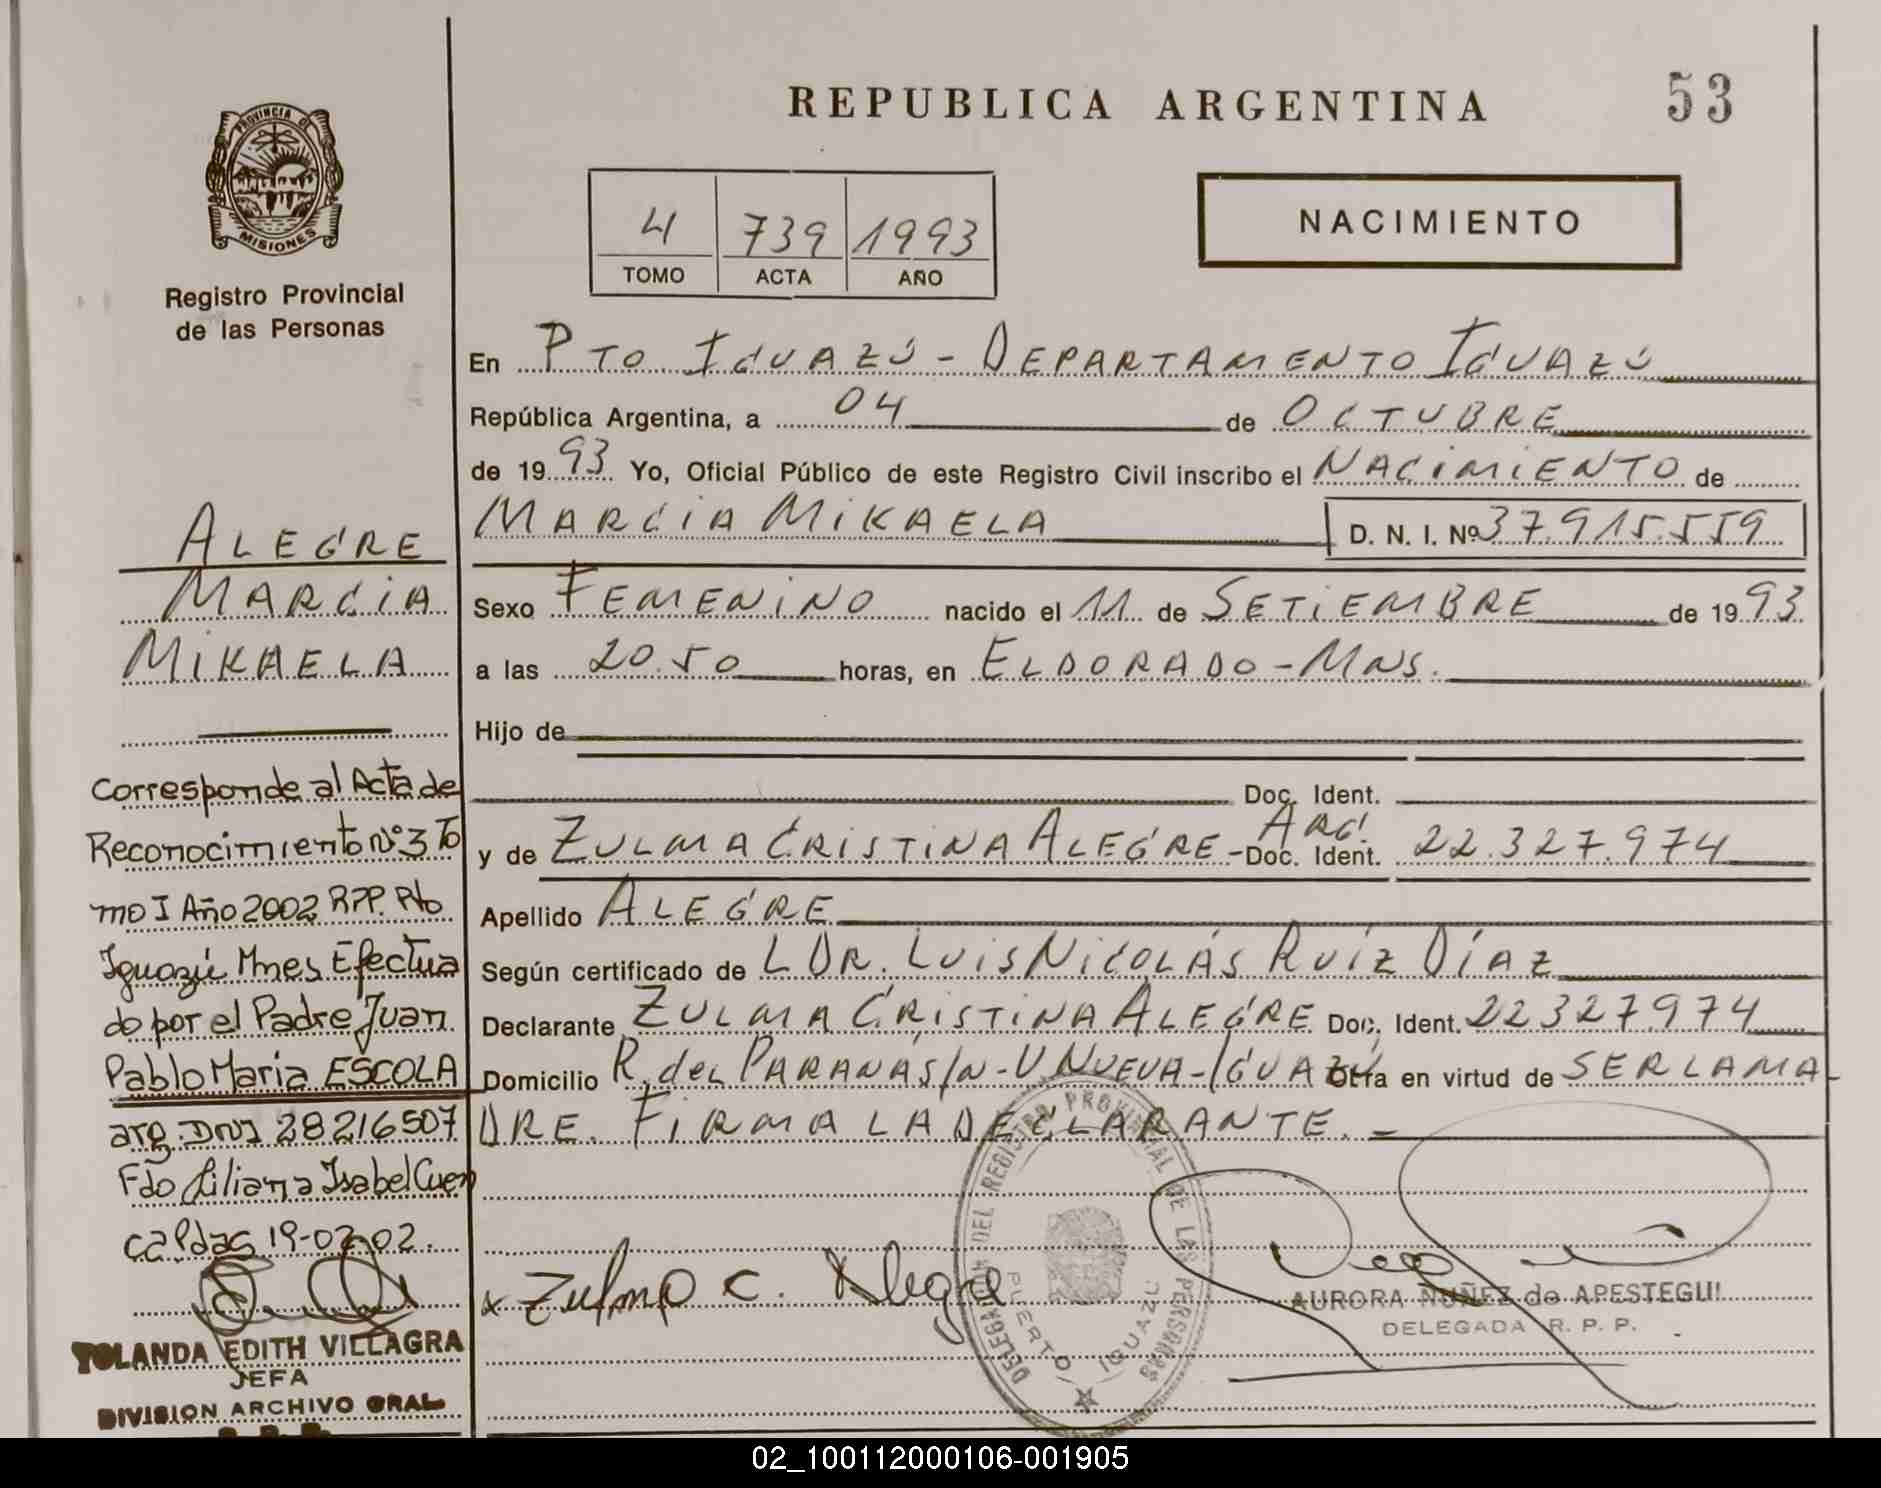 REPUBLICA ARGENTINA
53
PROVINCIA DE
MISIONES
Registro Provincial
de las Personas
4 739 1993
TOMO ACTA AÑO
NACIMIENTO
En PTO IGUAZÚ - DEPARTAMENTO IGUAZÚ
República Argentina, a 04 de OCTUBRE
de 1993 Yo, Oficial Público de este Registro Civil inscribo el NACIMIENTO de
MARCIA MIKAELA D. N. I. Nº 37.915.559
Sexo FEMENINO nacido el 11 de SETIEMBRE de 1993
a las 20.50 horas, en ELDORADO - MNS.
Hijo de
Doc. Ident.
y de ZULMA CRISTINA ALEGRE - ARG. Doc. Ident. 22.327.974
Apellido ALEGRE
Según certificado de LDR. LUIS NICOLÁS RUÍZ DÍAZ
Declarante ZULMA CRISTINA ALEGRE Doc. Ident. 22327974
Domicilio R. del PARANA S/N - V NUEVA - IGUAZÚ Obra en virtud de SER LA MA-
DRE. FIRMA LA DECLARANTE. -
ALEGRE
MARCIA
MIKAELA
Corresponde al Acta de
Reconocimiento Nº 3 To
mo I Año 2002 RPP. Pto
Iguazú Mnes Efectua
do por el Padre Juan
Pablo Maria ESCOLA
arg. DNI 28216507
Fdo Liliana Isabel Cuen
ca Pdas 19-02-02.
YOLANDA EDITH VILLAGRA
JEFA
DIVISION ARCHIVO GRAL
x Zulma C. Alegre
DELEGACION DEL REGISTRO PROVINCIAL DE LAS PERSONAS
PUERTO IGUAZU
AURORA NUÑEZ de APESTEGUI
DELEGADA R. P. P.
02_100112000106-001905